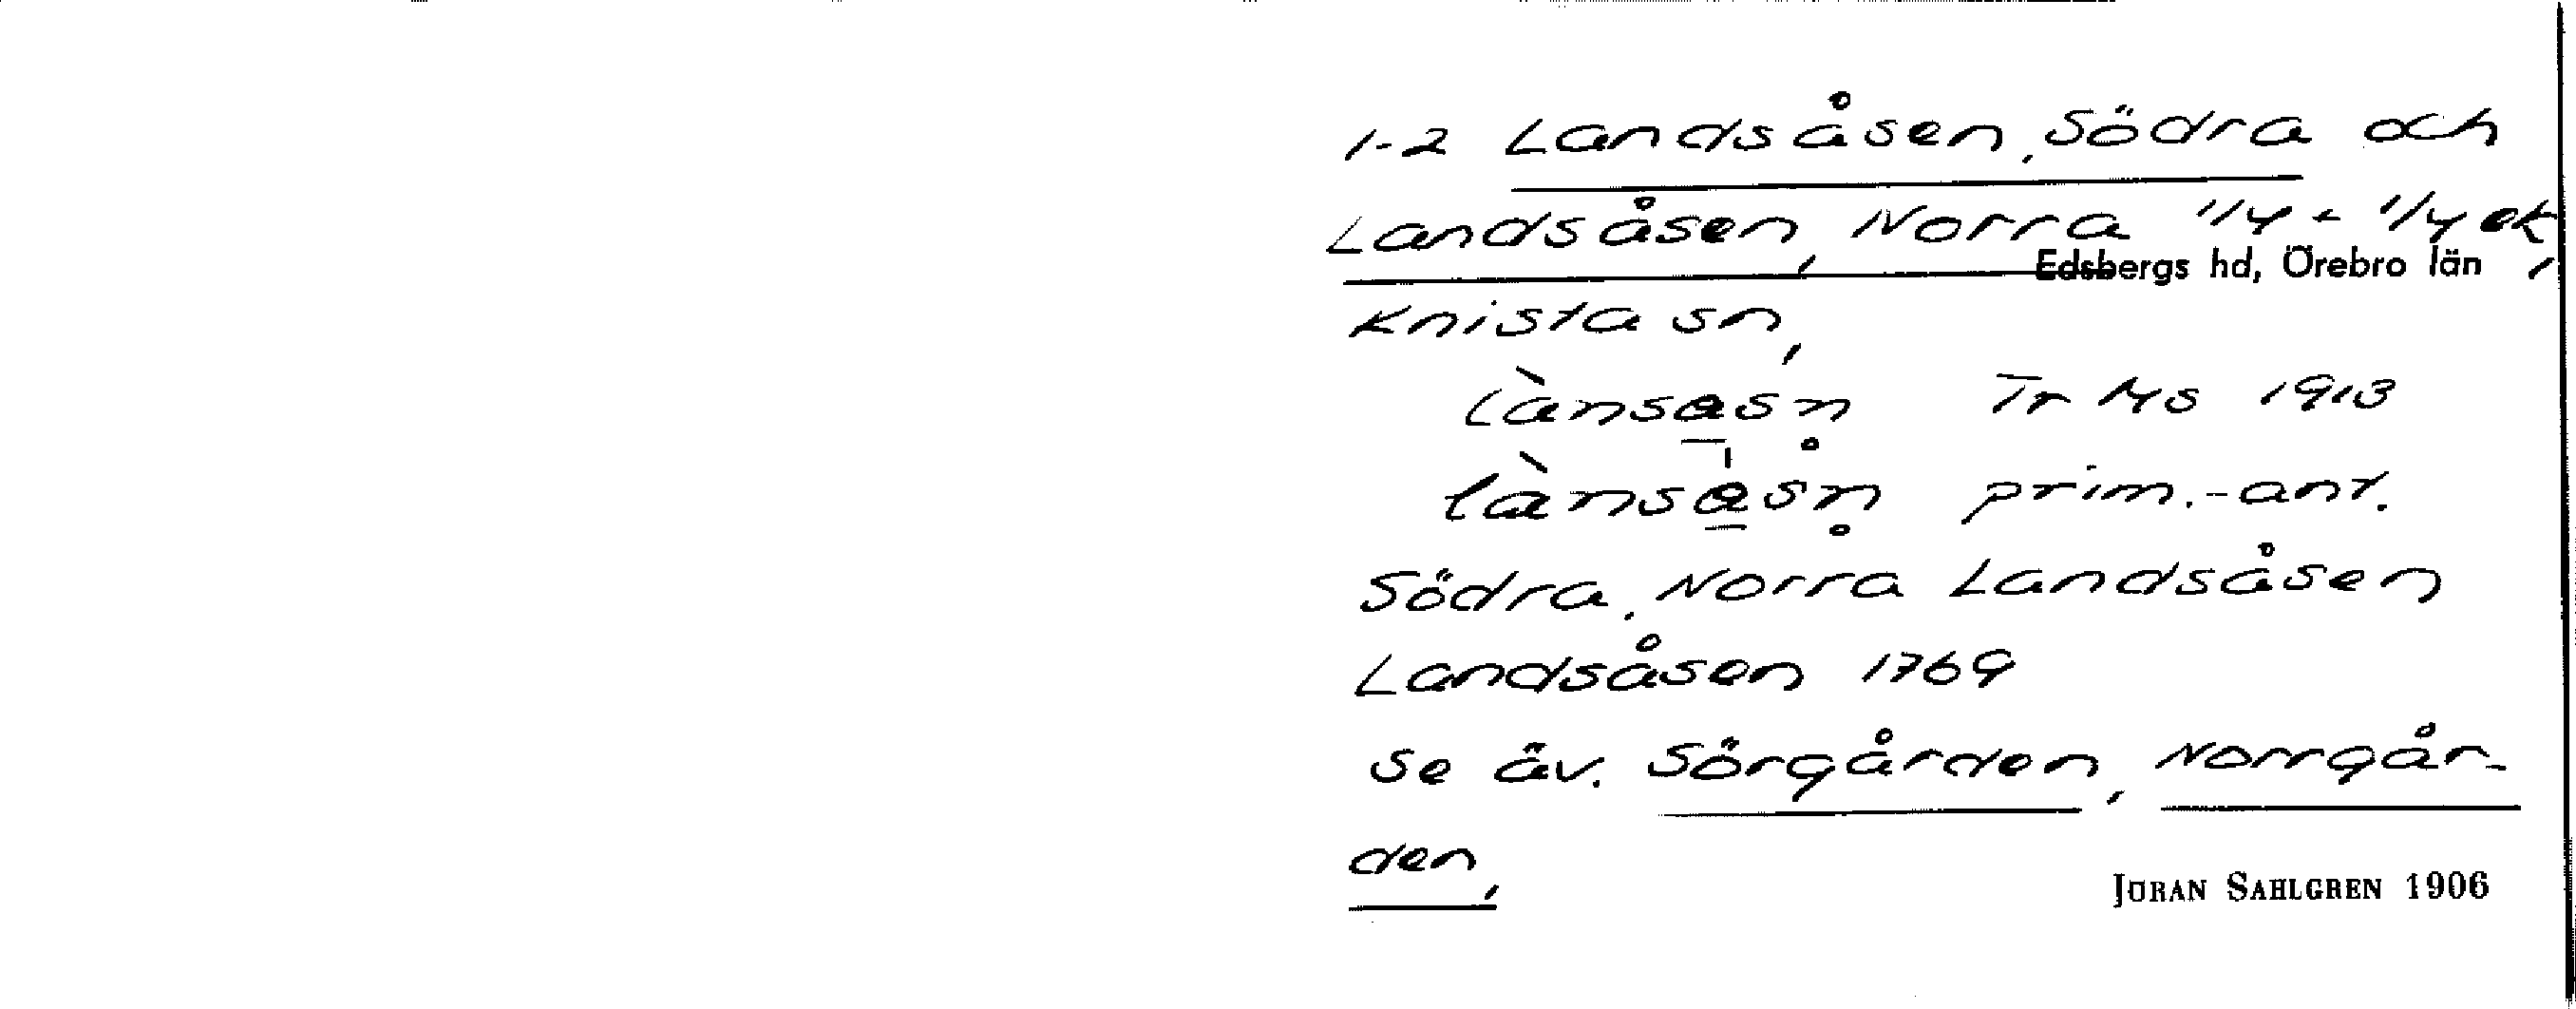 1-2 Landsåsen, Södra och
Landsåsen, Norra 1/4 - 1/4 ek,
Edsbergs hd, Örebro län
Knista sn,
lànsa̲sn̥ Tr Ms 1913
lànsa̲̍sn̥ prim.-ant.
Södra, Norra Landsåsen
Landsåsen 1769
se äv. Sörgården, Norrgår-
den,
JÖRAN SAHLGREN 1906